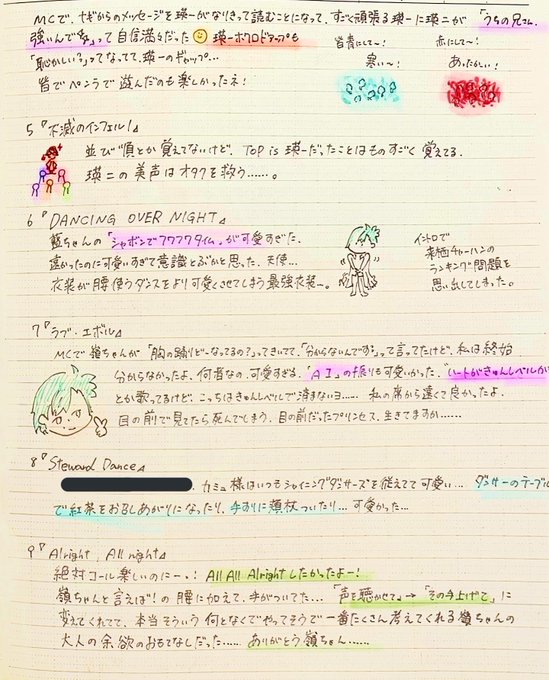 MCで、ナギからのメッセージを瑛一がなりきって読むことになって、すごく頑張る瑛一に瑛二が「うちの兄さん、
強いんで笑」って自信満々だった 瑛一ホクロドアップも
「恥かしい?」ってなってて、瑛一のギャップ…
皆でペンラで遊んだのも楽しかったネ!
皆青にして〜!
寒い〜!
赤にして〜!
あったかい!
5『不滅のインフェルノ』
並び順とか覚えてないけど、TOP is 瑛一だったことはものすごく覚えてる。
瑛二の美声はオタクを救う……。
6『DANCING OVER NIGHT』
藍ちゃんの「シャボンでフワフワタイム」が可愛すぎた。
遠かったのに可愛いすぎて意識とぶかと思った。天使…
衣装が腰使うダンスをより可愛くさせてしまう最強衣装〜。
イントロで
来栖チャーハンの
ランキング問題を
思い出してしまった。
7『ラブ・エボル』
MCで嶺ちゃんが「胸の踊りどーなってるの?」ってきいてて、「分からないんです」って言ってたけど、私は終始
分からなかったよ、何者なの、可愛すぎる。「AI」の振りも可愛いかった。"ハートがきゅんレベルが"
とか歌ってるけど、こっちはきゅんレベルで済まないヨ…… 私の席から遠くて良かったよ、
目の前で見てたら死んでしまう、目の前だったプリンセス、生きてますか……
8『Steward Dance』
カミュ様はいつもシャイニングダンサーズを従えてて可愛い… ダンサーのテーブル
で紅茶をお召しあがりになったり、手すりに頬杖ついたり… 可愛かった…
9『Alright, All night』
絶対コール楽しいのにー!All All Alrightしたかったよー!
嶺ちゃんと言えば!の腰に加えて、手がついてた…「声を聴かせて」→「その手上げて」に
変えてくれてて、本当そういう何となくでやってそうで一番たくさん考えてくれる嶺ちゃんの
大人の余欲のおもてなしだった…… ありがとう嶺ちゃん……